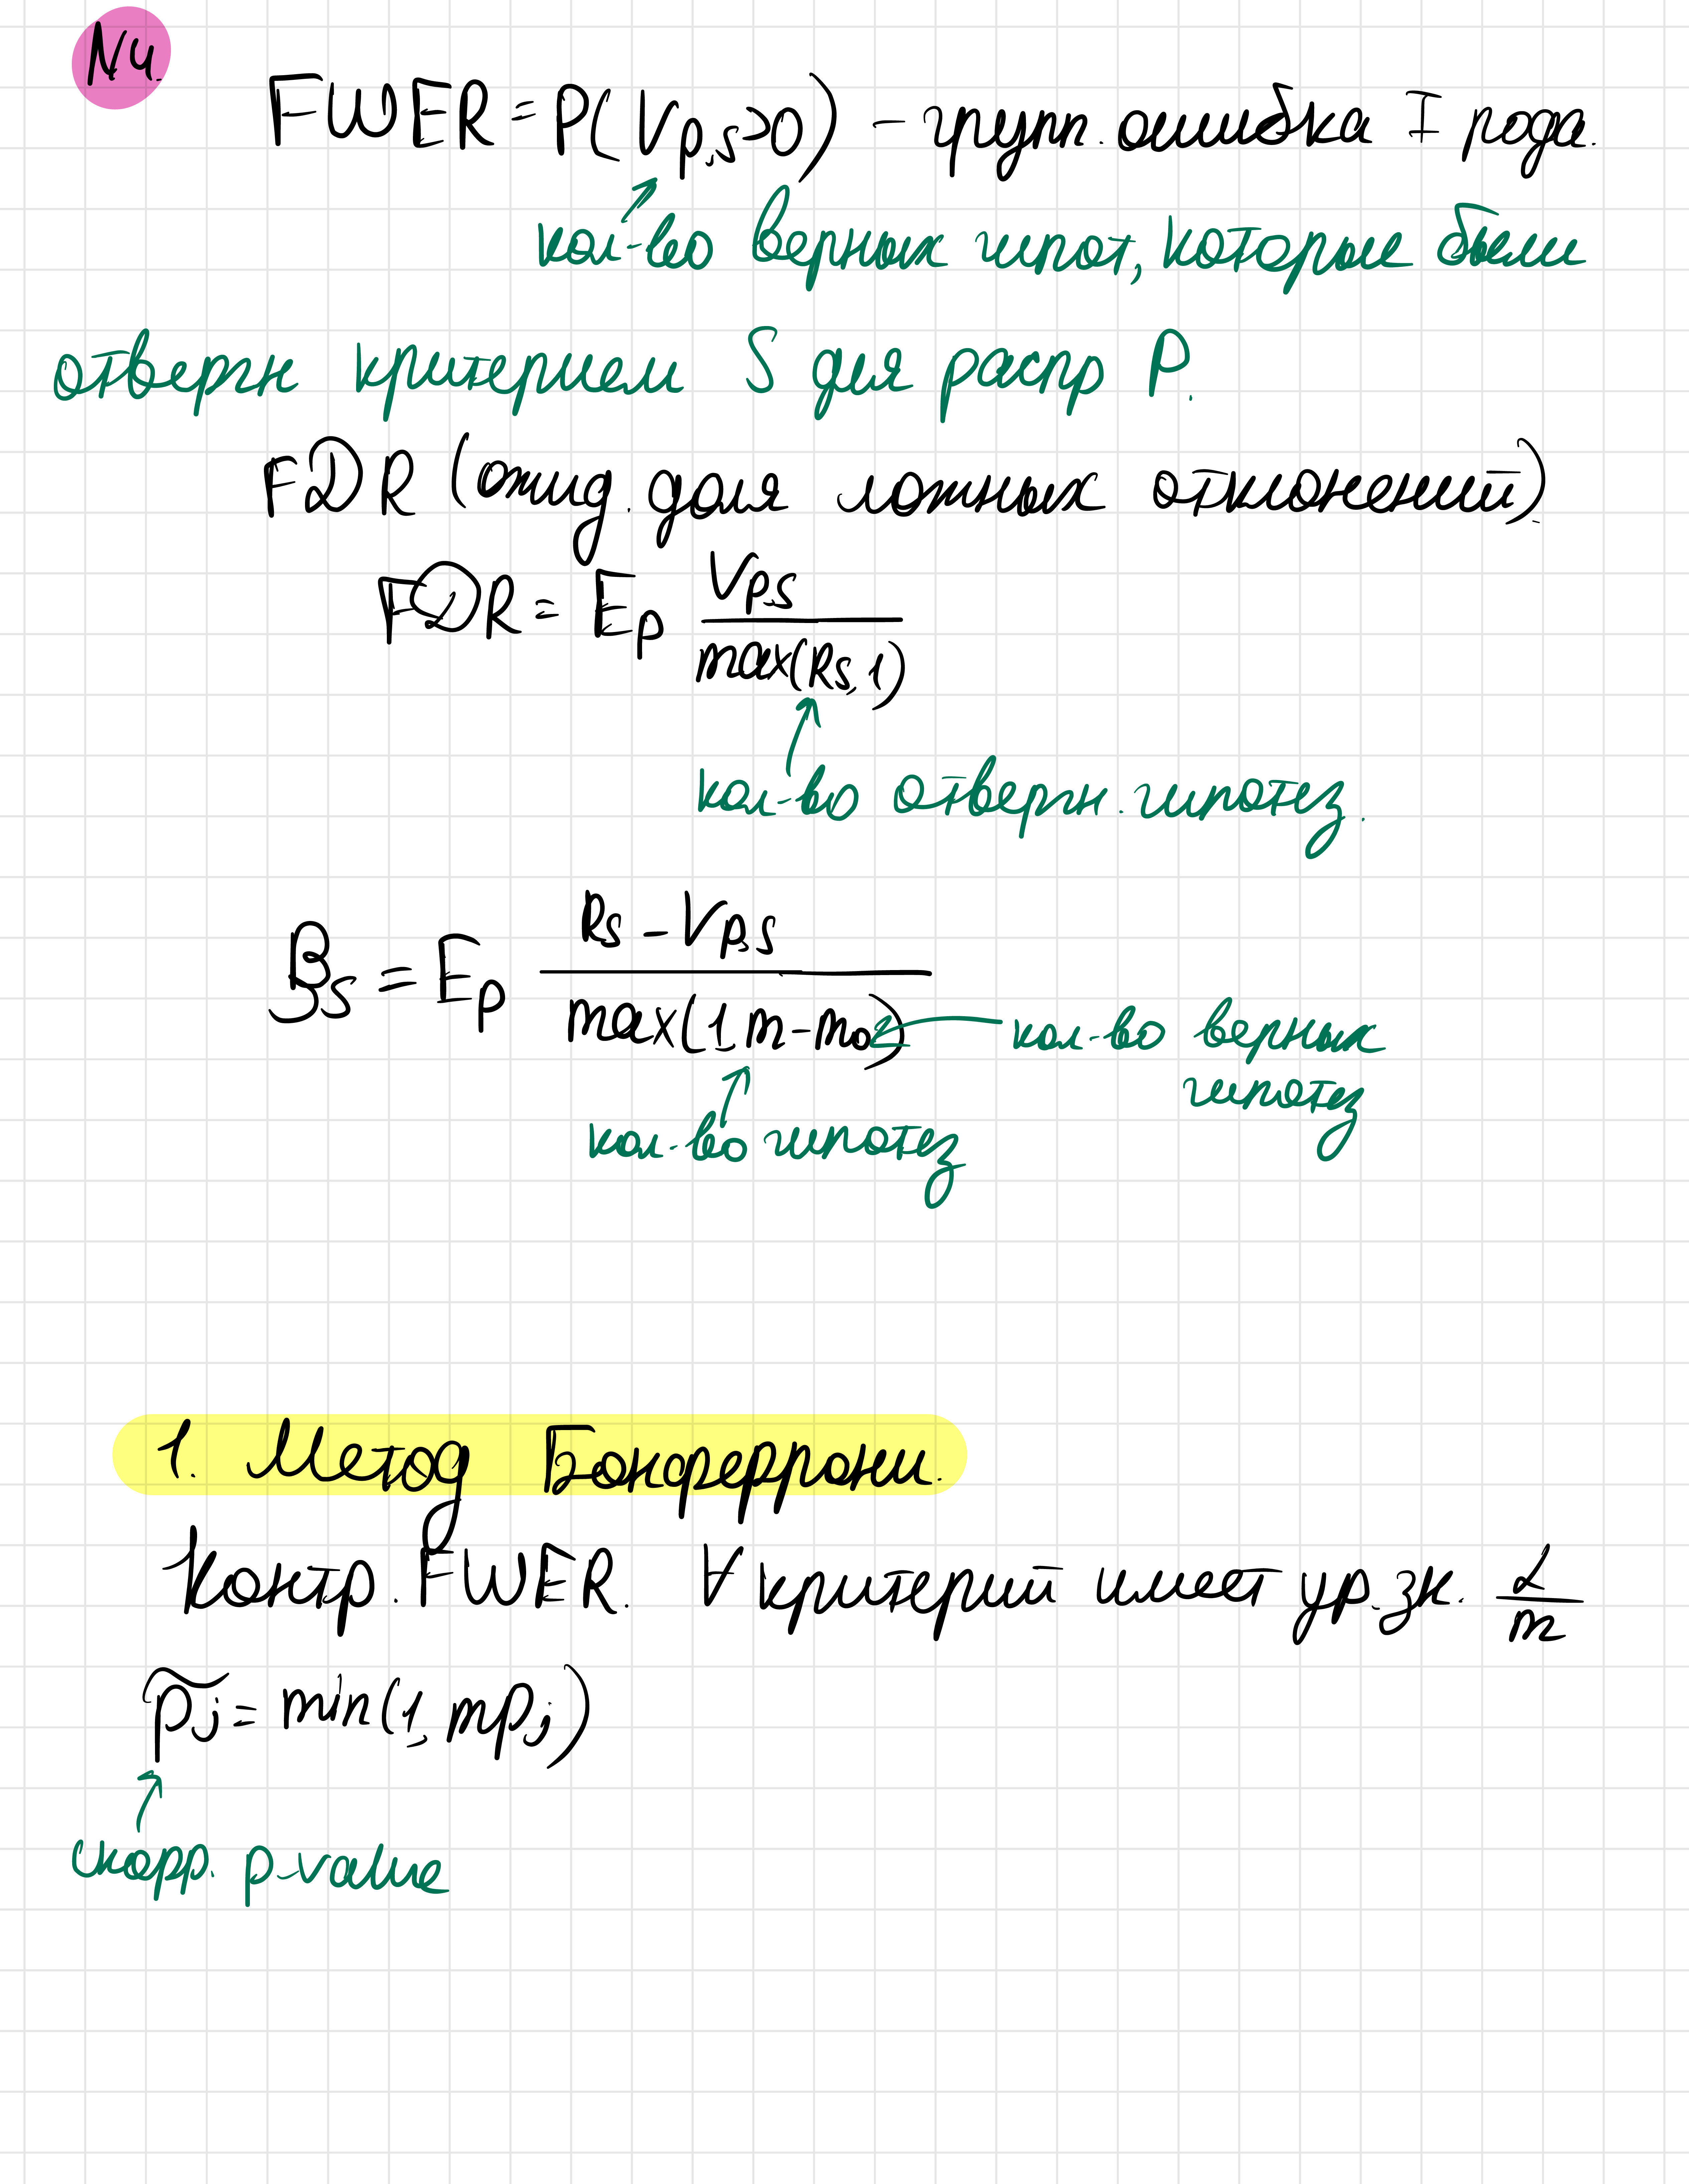 N4.
FWER = P(V_{P,S}>0) - групп. ошибка I рода.
кол-во верных гипот, которые были
отвергн критерием S для распр P.
FDR (ожид. доля ложных отклонений)
FDR = E_P \frac{V_{P,S}}{max(R_S, 1)}
кол-во отвергн. гипотез.
β_S = E_P \frac{R_S - V_{P,S}}{max(1, m - m_0)}
кол-во верных
гипотез
кол-во гипотез
1. Метод Бонферрони.
Контр. FWER. ∀ критерий имеет ур. зн. \frac{α}{m}
\widetilde{p_j} = min(1, mp_j)
скорр. p-value